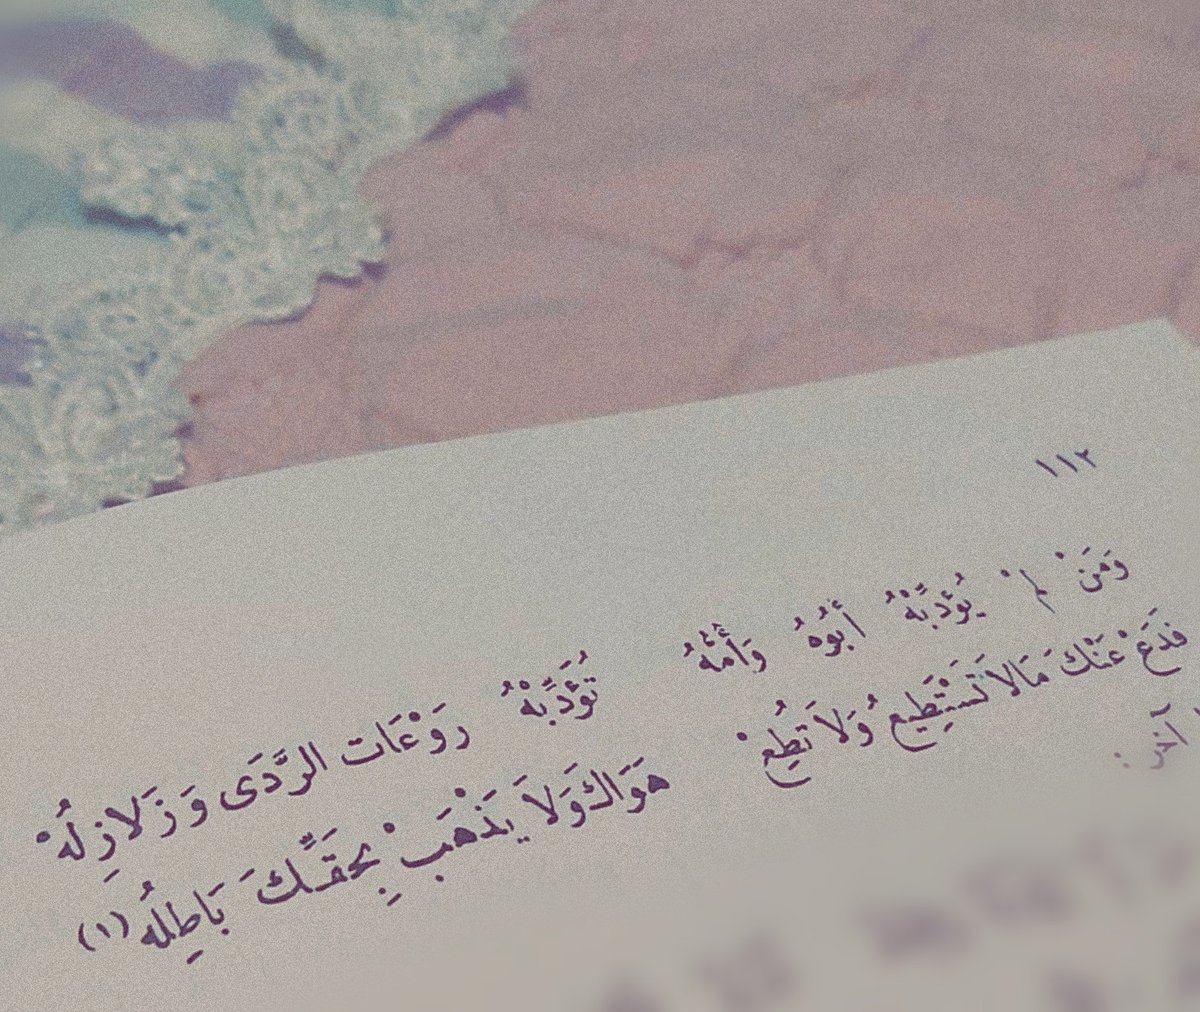 ١١٢
وَمَنْ لمْ يُؤَدِّبْهُ أَبُوهُ وَأُمُّهُ تُؤَدِّبْهُ رَوْعَات الرَّدَى وَزَلَازِلُهْ
فَدَعْ عَنْكَ مَالاَ تَسْتَطِيعُ وَلاَ تُطِعْ هَوَاكَ وَلاَ يَذْهَبْ بِحَقِّكَ بَاطِلُه (١)
آخر :